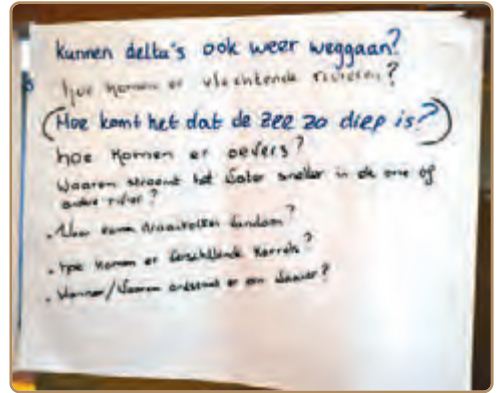 kunnen delta's ook weer weggaan?
hoe komen er vlechtende rivieren?
(Hoe komt het dat de zee zo diep is?)
hoe komen er oevers?
Waarom stroomt het water sneller in de ene of
andere rivier?
. Waar komen draaikolken vandaan?
. hoe komen er verschillende korrels?
. Wanneer/Waarom ontstaat er een waaier?